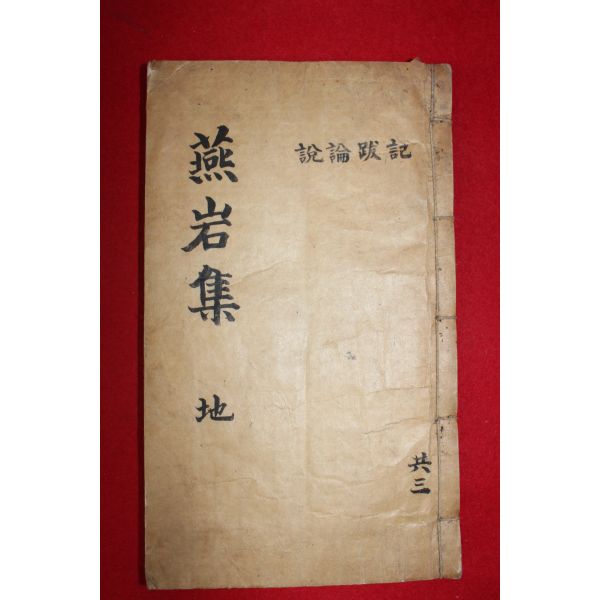 燕岩集 地
記跋論說
共三